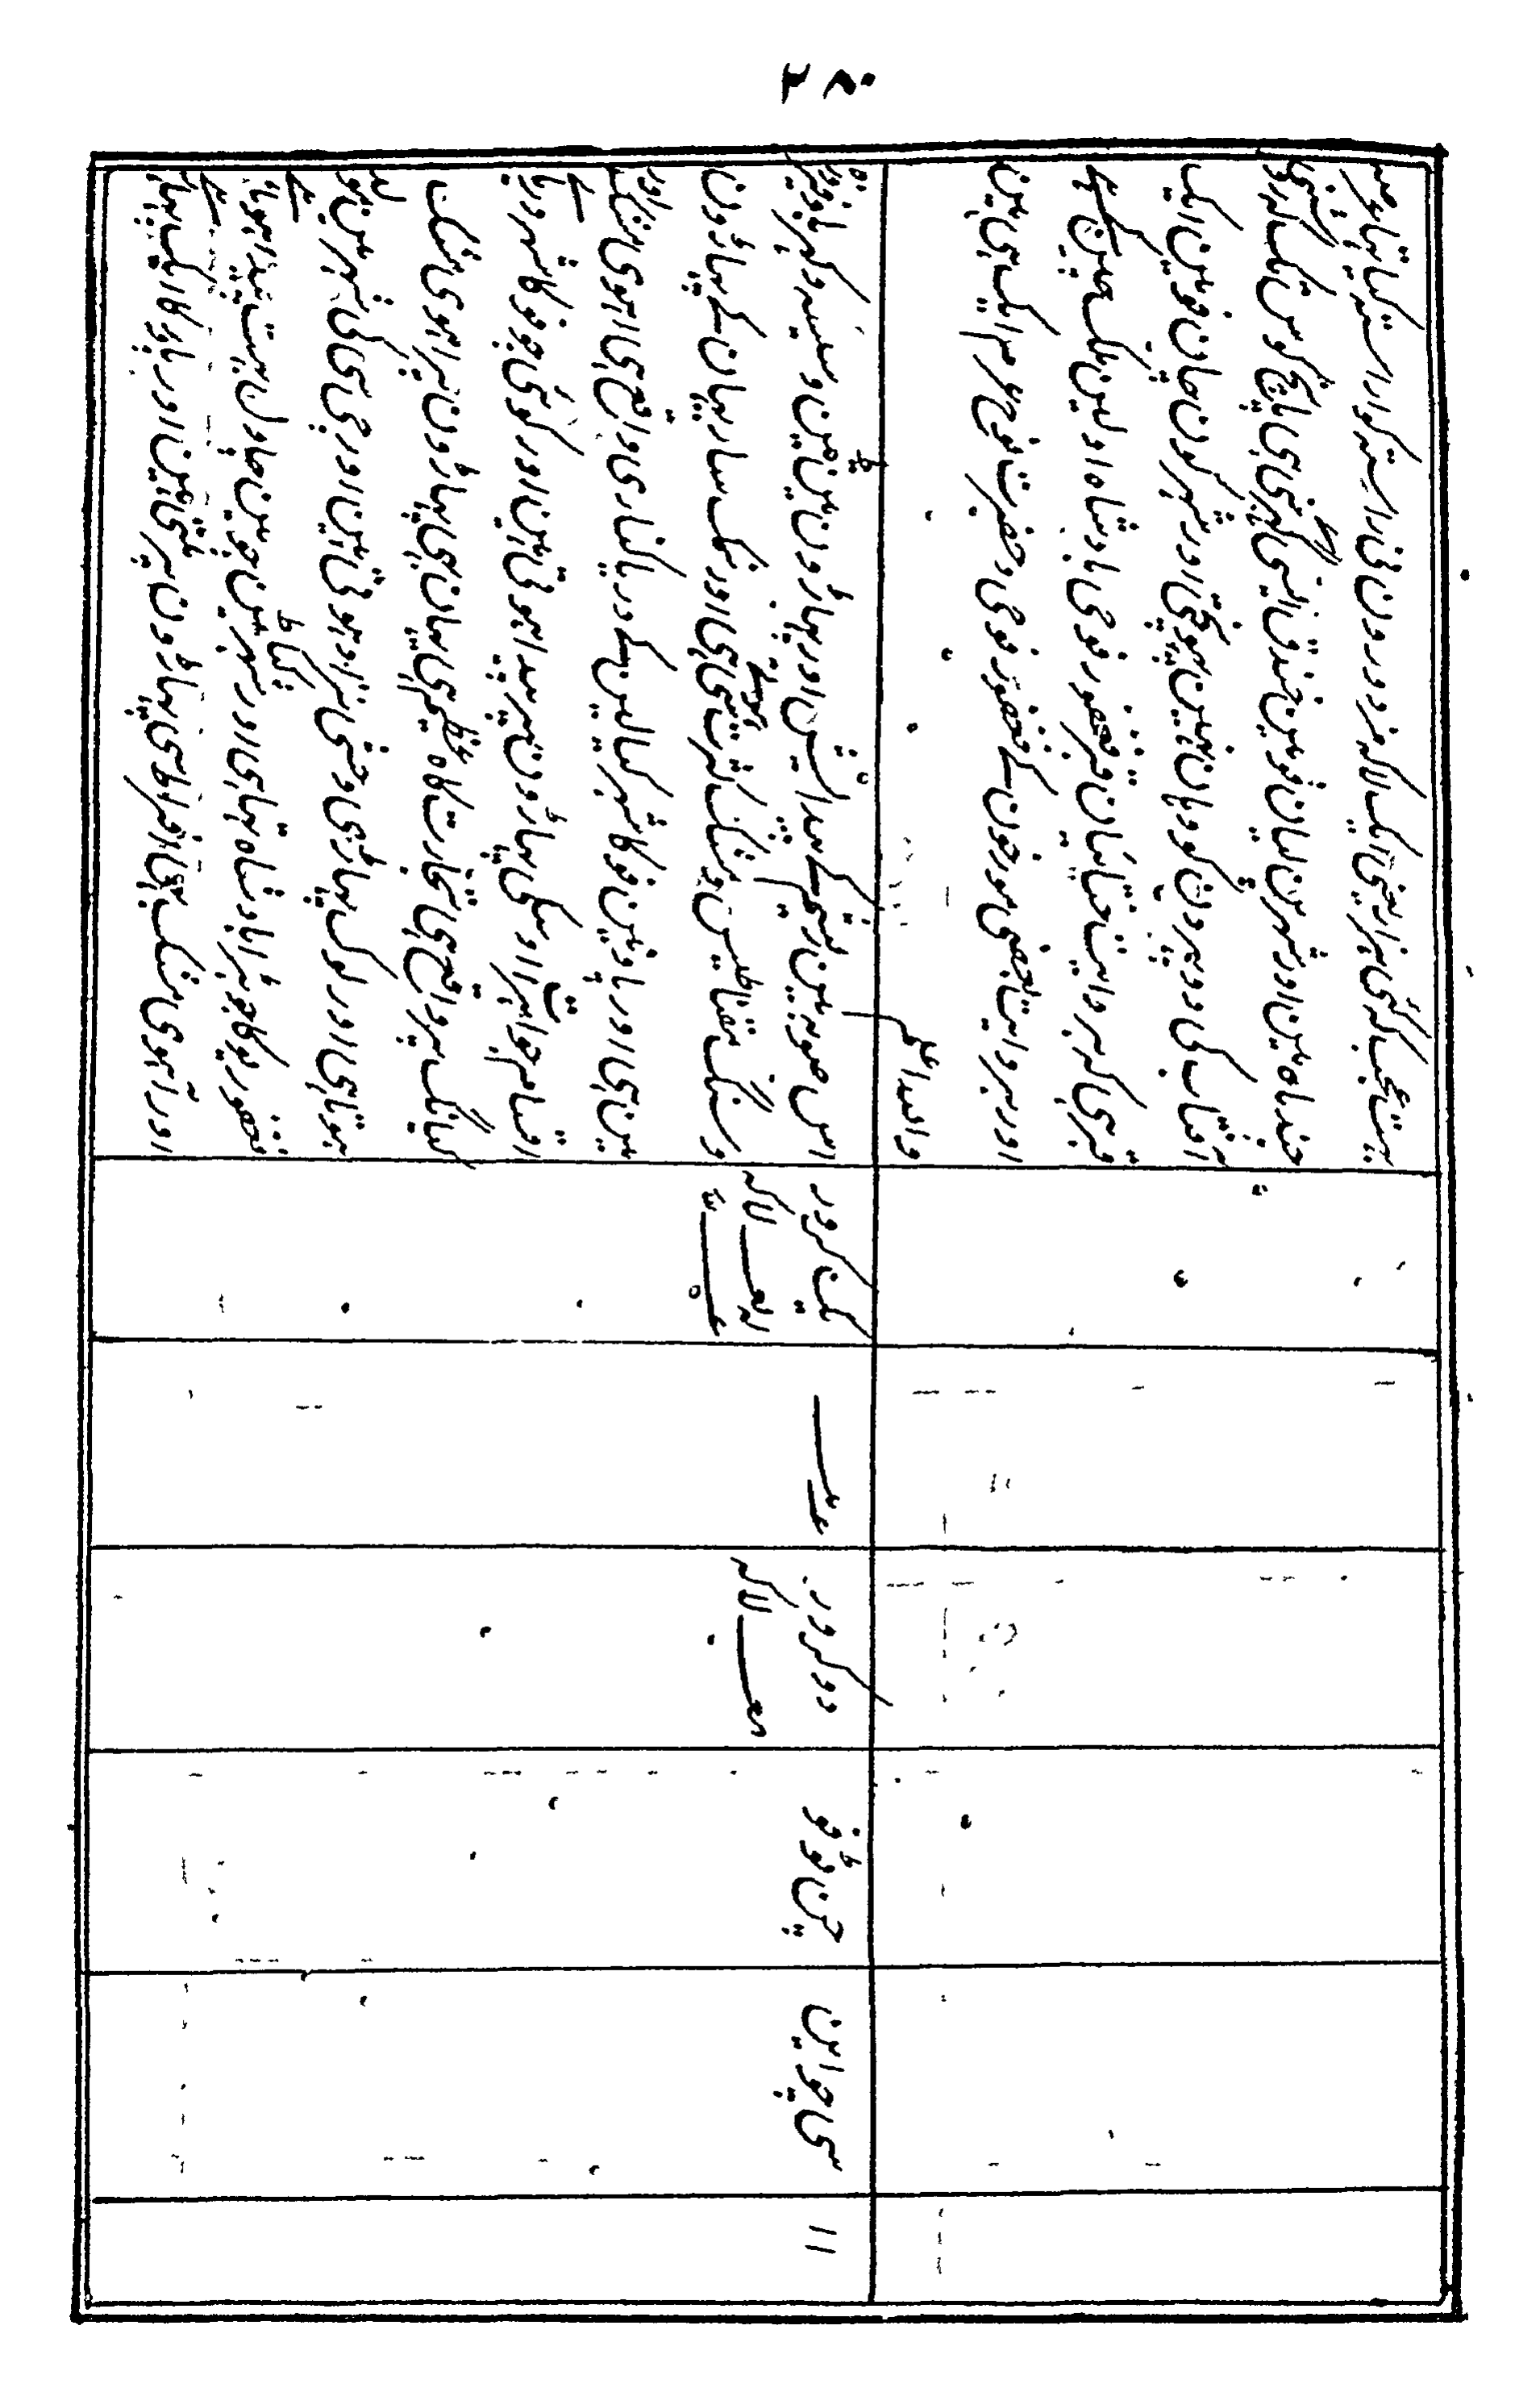 بہت عجب کہ کئی ہزار ایک لاکہ مزدورون نی راستہ کو آراستہ کیا تہا عرصہ
چند ماہ مین اور شہرن لیان فو مین خندق ایسی گہری ہی پانچ کوس تک کہ روشنی
آفتاب کی دوپہر دن کو وہان نہین پہونچتی اور شہر کون جان فو مین ایک
قبر ہی کہ بروایت ختائیان قبر فغفور فوہی بادشاہ اولین ملک چین کی ہی
اور بروایت بعضی مورخون کے فغفور فوہی و حضرت نوح عم ایک ہی ہین
واللہ اعلم
۱۱
سی چواین
چین توفو
دو کرور
لاکہ
تین کرور
لاکہ
اس صوبہ مین ریشم کے پیدایش اور پہاڑون مین ٹین و سیسہ و کہربا وغیرہ
و سنگ مقناطیس و مشک کثرت سی ہی اور نمک سار یہان کے پہاڑون
مین ہی اور یاو مین فو کا شہر کیالین کے دریا کناری واقع ہی آہوی مشک اور
اقسام جواہرات اوسکی پہاڑون مین پیدا ہوتی ہین اور کوی چو فو کا شہر دریا
کیانگ پر واقع ہی تجارتگاہ عظیم ہی یہان بھی پہاڑون پر آہوی مشک
ہوتا ہی اور لوک پہاڑی وحشی نژاد ہوتی ہین اور کی شہر مین
فغفور یو کا جو بڑا بادشاہ تہا ہی اور شہر مین چاول بہت پیدا ہوتا
اور آہوی مشک بھی افراط سی پہاڑون پر ملتی ہین اور یاچو کا ایک پہاڑ